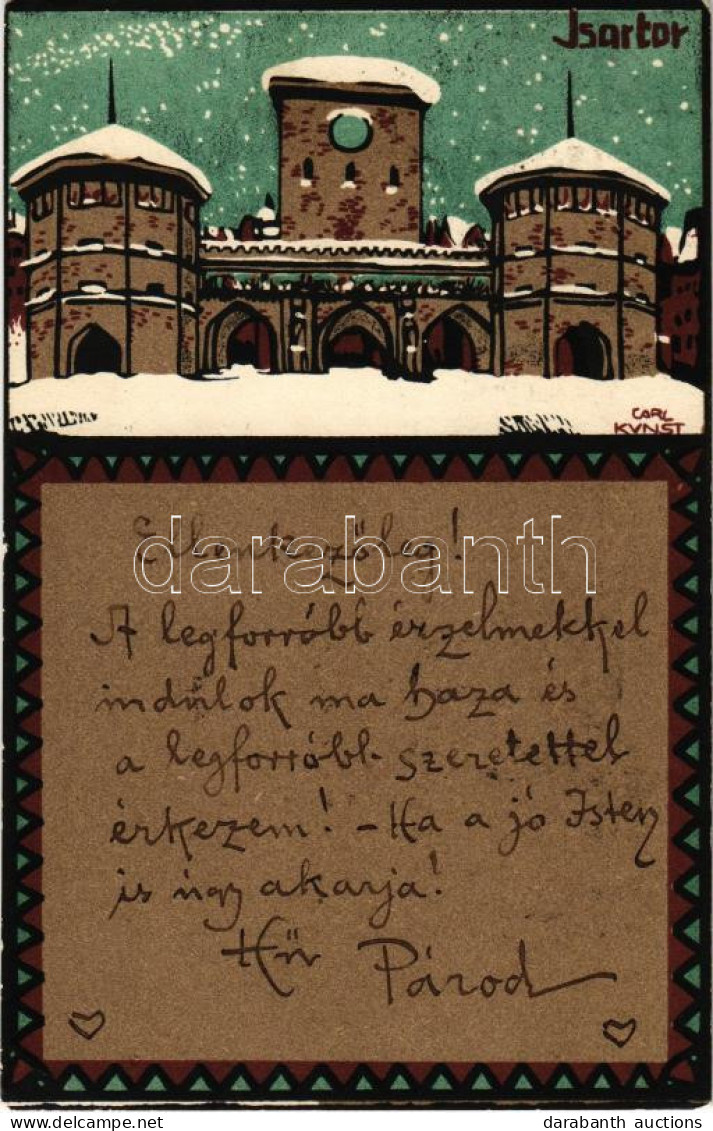 Isartor
CARL
KVNST
Ellenkezőleg!
A legforróbb érzelmekkel
indulok ma haza és
a legforróbb szeretettel
érkezem! – Ha a jó Isten
is úgy akarja!
Hű Párod
darabanth
© www.darabanth.com
darabanth auctions